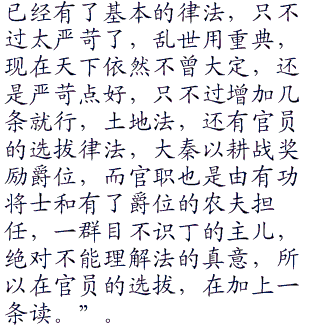 已经有了基本的律法，只不
过太严苛了，乱世用重典，
现在天下依然不曾大定，还
是严苛点好，只不过增加几
条就行，土地法，还有官员
的选拔律法，大秦以耕战奖
励爵位，而官职也是由有功
将士和有了爵位的农夫担
任，一群目不识丁的主儿，
绝对不能理解法的真意，所
以在官员的选拔，在加上一
条读。”。